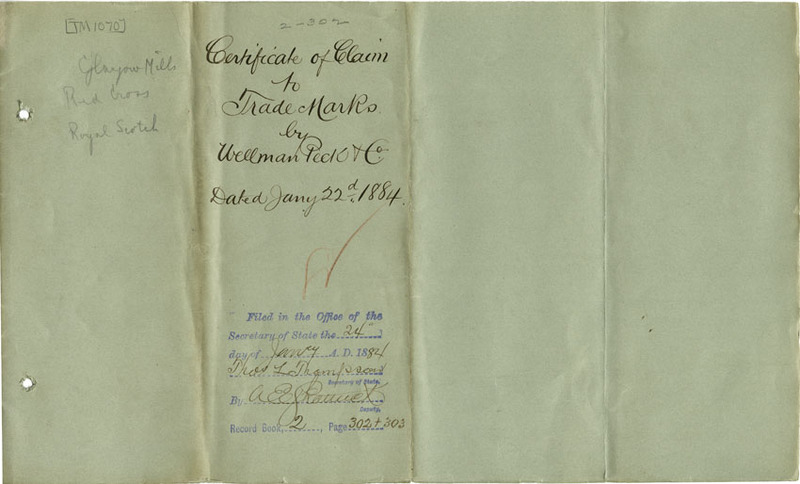 [TM1070]
Glasgow Mills
Red Cross
Royal Scotch
2-302
Certificate of Claim
to
Trade Marks
by
Wellman Peck & Co
Dated Jany 22d, 1884.
Filed in the Office of the
Secretary of State the 24"
day of Jan'ry A. D. 1884
Thos L. Thompson
Secretary of State.
By
Deputy.
Record Book, 2, Page 302 + 303